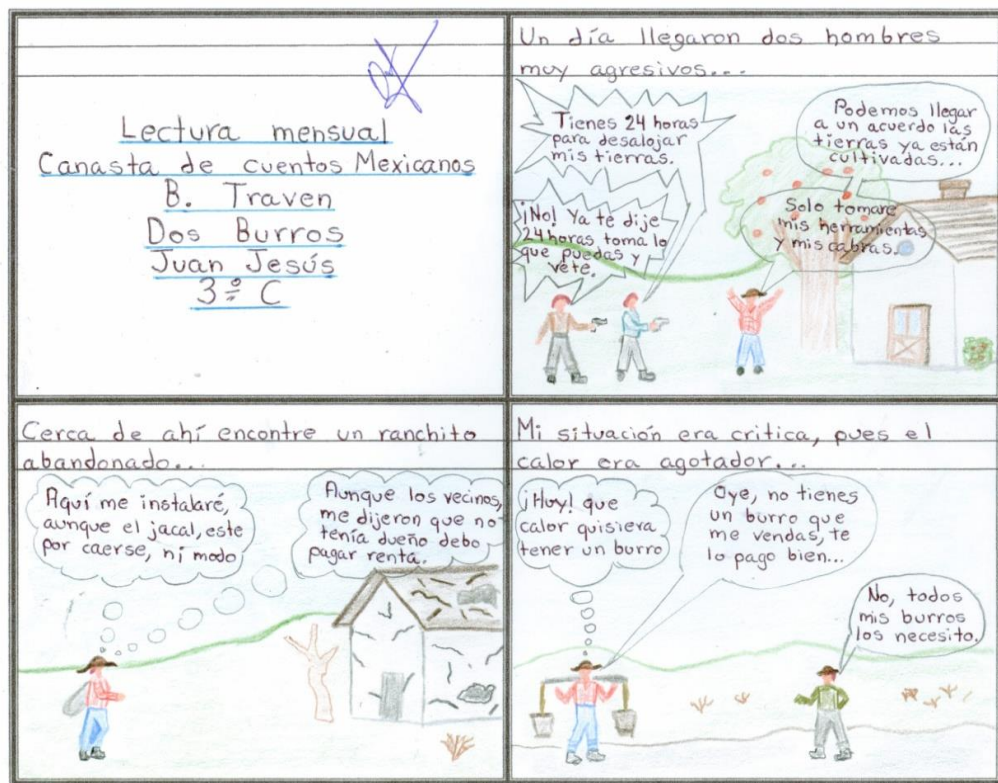 Lectura mensual
Canasta de cuentos Mexicanos
B. Traven
Dos Burros
Juan Jesús
3º C
Un día llegaron dos hombres
muy agresivos...
Tienes 24 horas
para desalojar
mis tierras.
Podemos llegar
a un acuerdo las
tierras ya están
cultivadas...
¡No! Ya te dije
24 horas toma lo
que puedas y
vete.
Solo tomare
mis herramientas
y mis cabras.
Cerca de ahí encontre un ranchito
abandonado...
Aquí me instalaré,
aunque el jacal, este
por caerse, ni modo
Aunque los vecinos,
me dijeron que no
tenía dueño debo
pagar renta.
Mi situación era critica, pues el
calor era agotador...
¡Huy! que
calor quisiera
tener un burro
Oye, no tienes
un burro que
me vendas, te
lo pago bien...
No, todos
mis burros
los necesito.